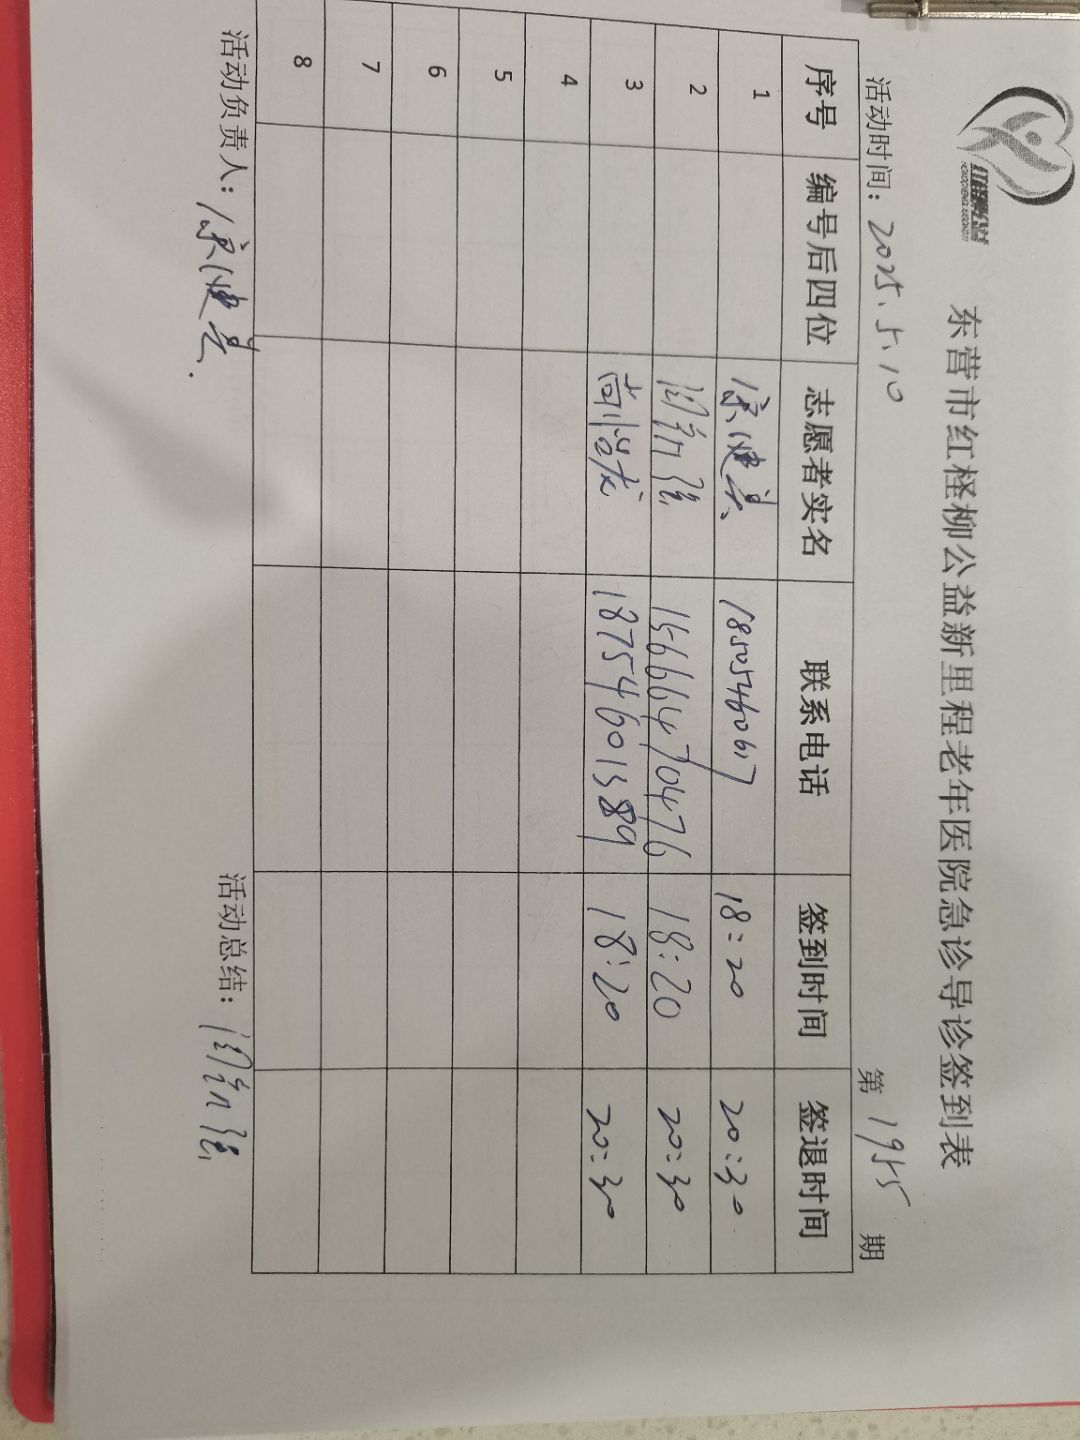 红柽柳公益
东营市红柽柳公益新里程老年医院急诊导诊签到表
活动时间：2025.5.10 第 1955 期
序号 编号后四位 志愿者实名 联系电话 签到时间 签退时间
1 18505460617 18:20 20:30
2 15666470476 18:20 20:30
3 尚怡龙 18754601389 18:20 20:30
4
5
6
7
8
活动负责人： 活动总结：